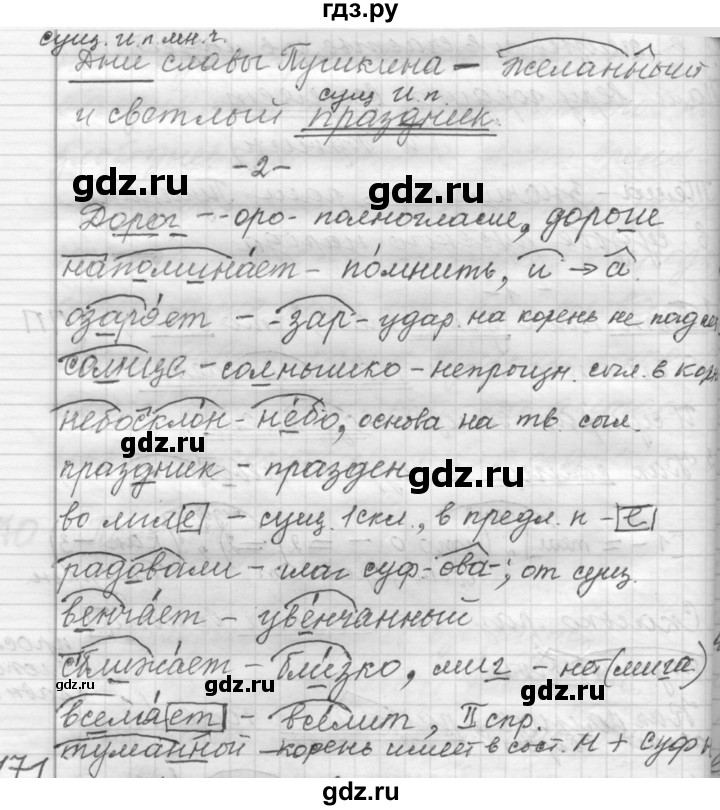 гдз.ру
сущ. И.п. мн.ч.
Дни славы Пушкина – желанный
сущ И.п.
и светлый праздник.
-2-
gdz.ru
gdz.ru
Дорог - -оро- полногласие, дороже
напоминает - помнить, и → а.
озаряет - -зар- удар. на корень не пада
солнце - солнышко - непроизн. согл. в кор
небосклон - небо, основа на тв. согл.
gdz.ru
праздник - празден
gdz.ru
во мгле - сущ. 1скл., в предл. п - е
радовали - глаг суф -ова-; от сущ.
венчает - увенчанный
сближает - близко, миг - на (мига)
gdz.ru
gdz.ru
gdz.ru
вселяет - вселит, II спр.
туманный - корень имеет в сост. Н + суф Н
171